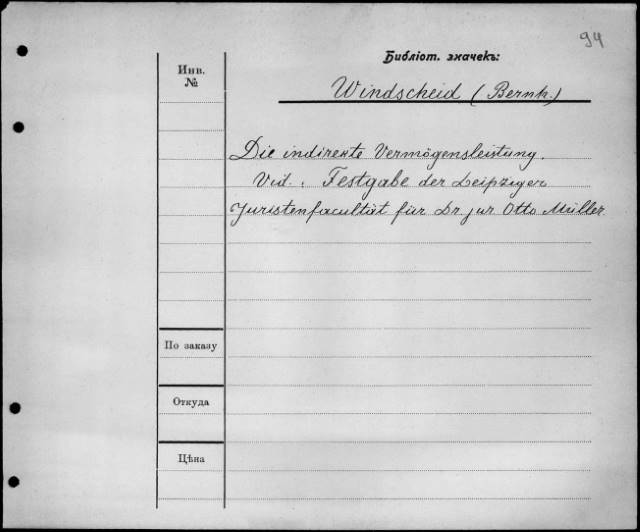 94
Библіот. значекъ:
Инв.
№
Windscheid (Bernh.)
Die indirekte Vermögensleistung.
Vid.: Festgabe der Leipziger
Juristenfacultät für Dr. jur Otto Müller.
По заказу
Откуда
Цѣна